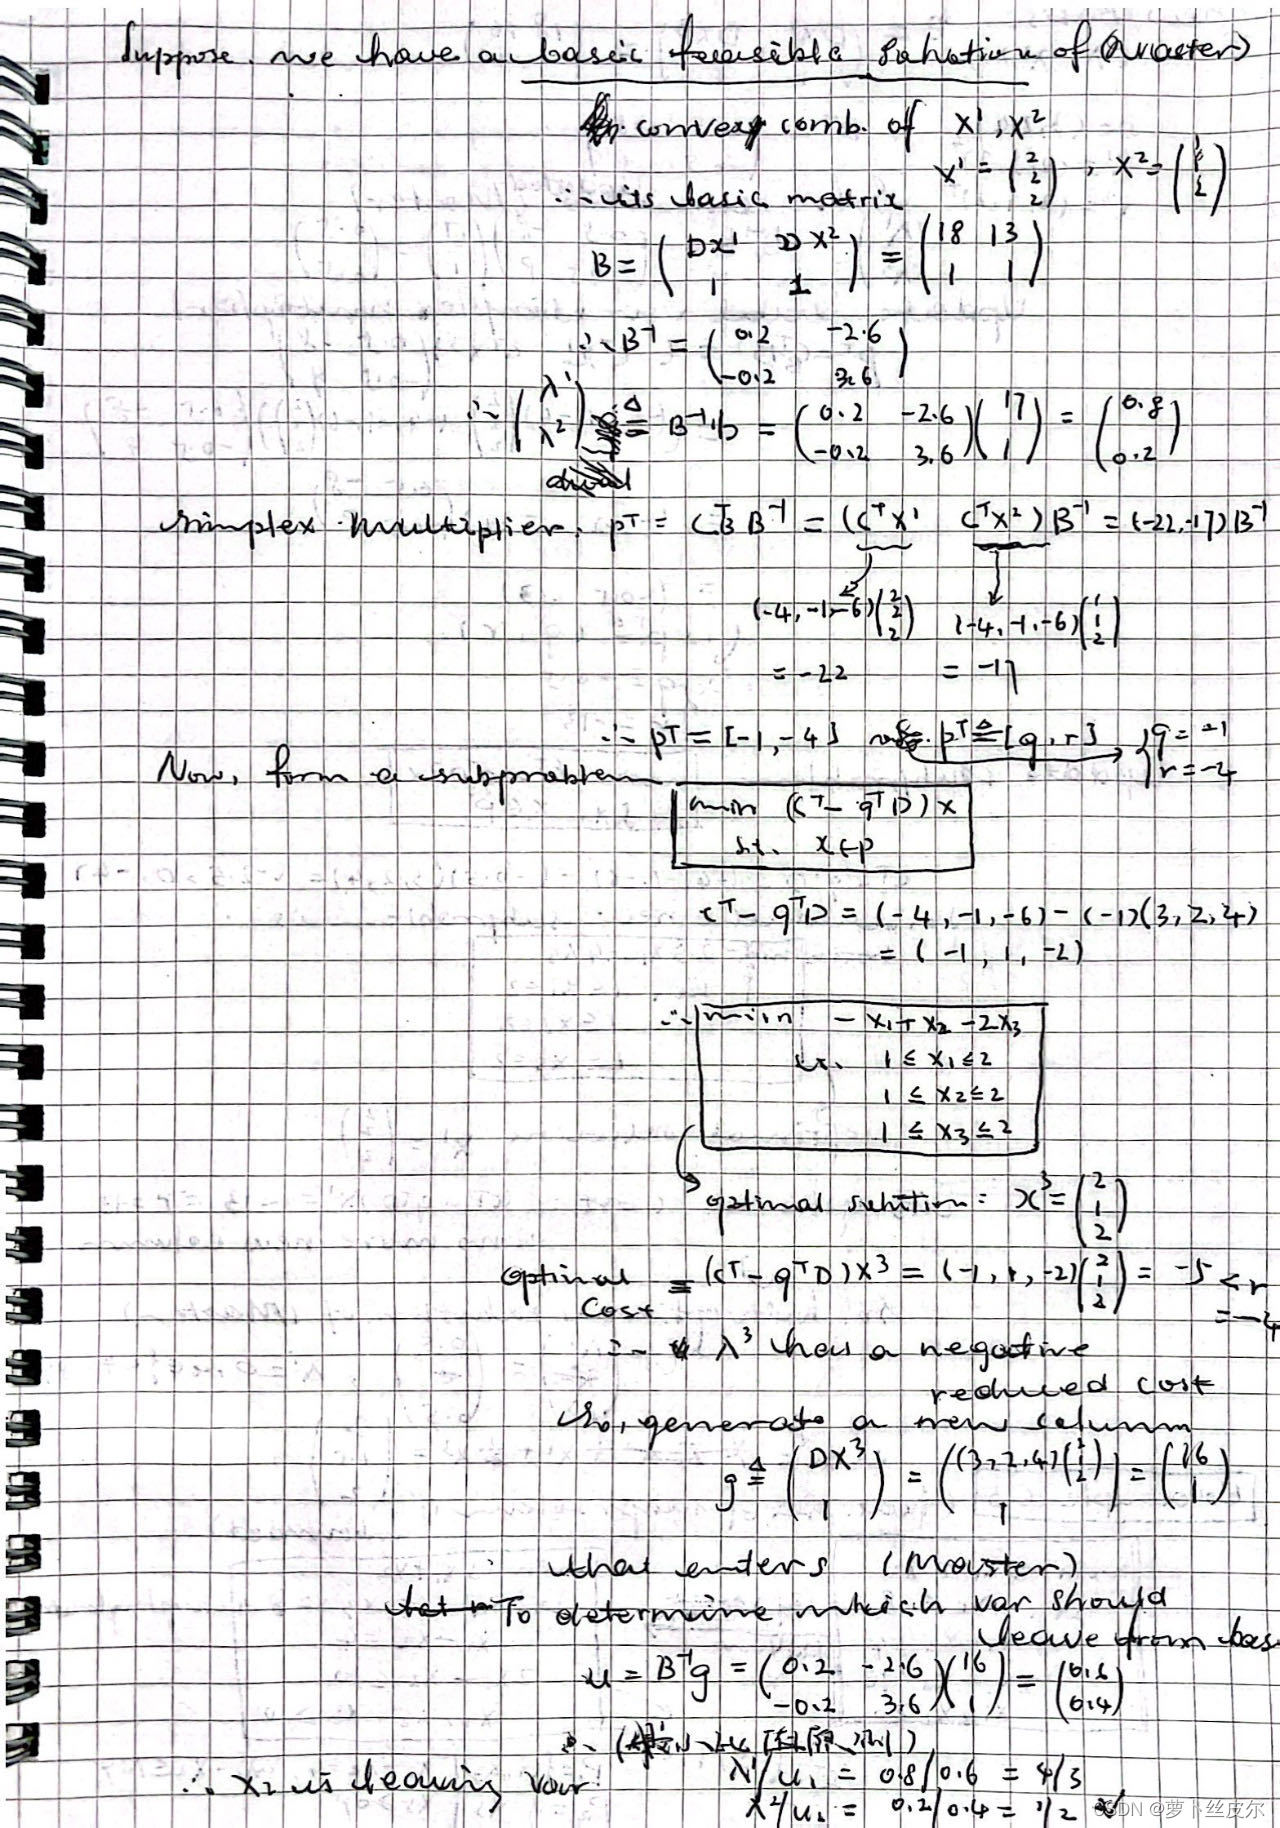 Suppose, we have a basic feasible solution of (Master)
convex comb. of x¹, x²
x¹ = (2 2 2), x² = (1 1 2)
∴ its basic matrix
B = (Dx¹ Dx² 1 1) = (18 13 1 1)
∴ B⁻¹ = (0.2 -2.6 -0.2 3.6)
∴ (λ¹ λ²) ≜ B⁻¹b = (0.2 -2.6 -0.2 3.6)(17 1) = (0.8 0.2)
simplex multiplier. pᵀ = CᵀB B⁻¹ = (Cᵀx¹ Cᵀx²) B⁻¹ = (-22, -17) B⁻¹
(-4, -1, -6)(2 2 2) (-4, -1, -6)(1 1 2)
= -22 = -17
∴ pᵀ = [-1, -4] pᵀ ≜ [q, r] → { q = -1 r = -4
Now, form a subproblem
min (Cᵀ - qᵀD) x
s.t. x ∈ p
Cᵀ - qᵀD = (-4, -1, -6) - (-1)(3, 2, 4)
= (-1, 1, -2)
∴ min - x₁ + x₂ - 2x₃
s.t. 1 ≤ x₁ ≤ 2
1 ≤ x₂ ≤ 2
1 ≤ x₃ ≤ 2
optimal solution: x³ = (2 1 2)
optimal cost = (Cᵀ - qᵀD) x³ = (-1, 1, -2)(2 1 2) = -5 < r = -4
∴ λ³ has a negative
reduced cost
So, generate a new column
g ≜ (Dx³ 1) = ((3, 2, 4)(2 1 2) 1) = (16 1)
that enters (Master)
To determine which var should
leave from bas
u = B⁻¹g = (0.2 -2.6 -0.2 3.6)(16 1) = (0.6 0.4)
λ¹/u₁ = 0.8/0.6 = 4/3
∴ x₂ is leaving var
λ²/u₂ = 0.2/0.4 = 1/2
CSDN @萝卜丝皮尔